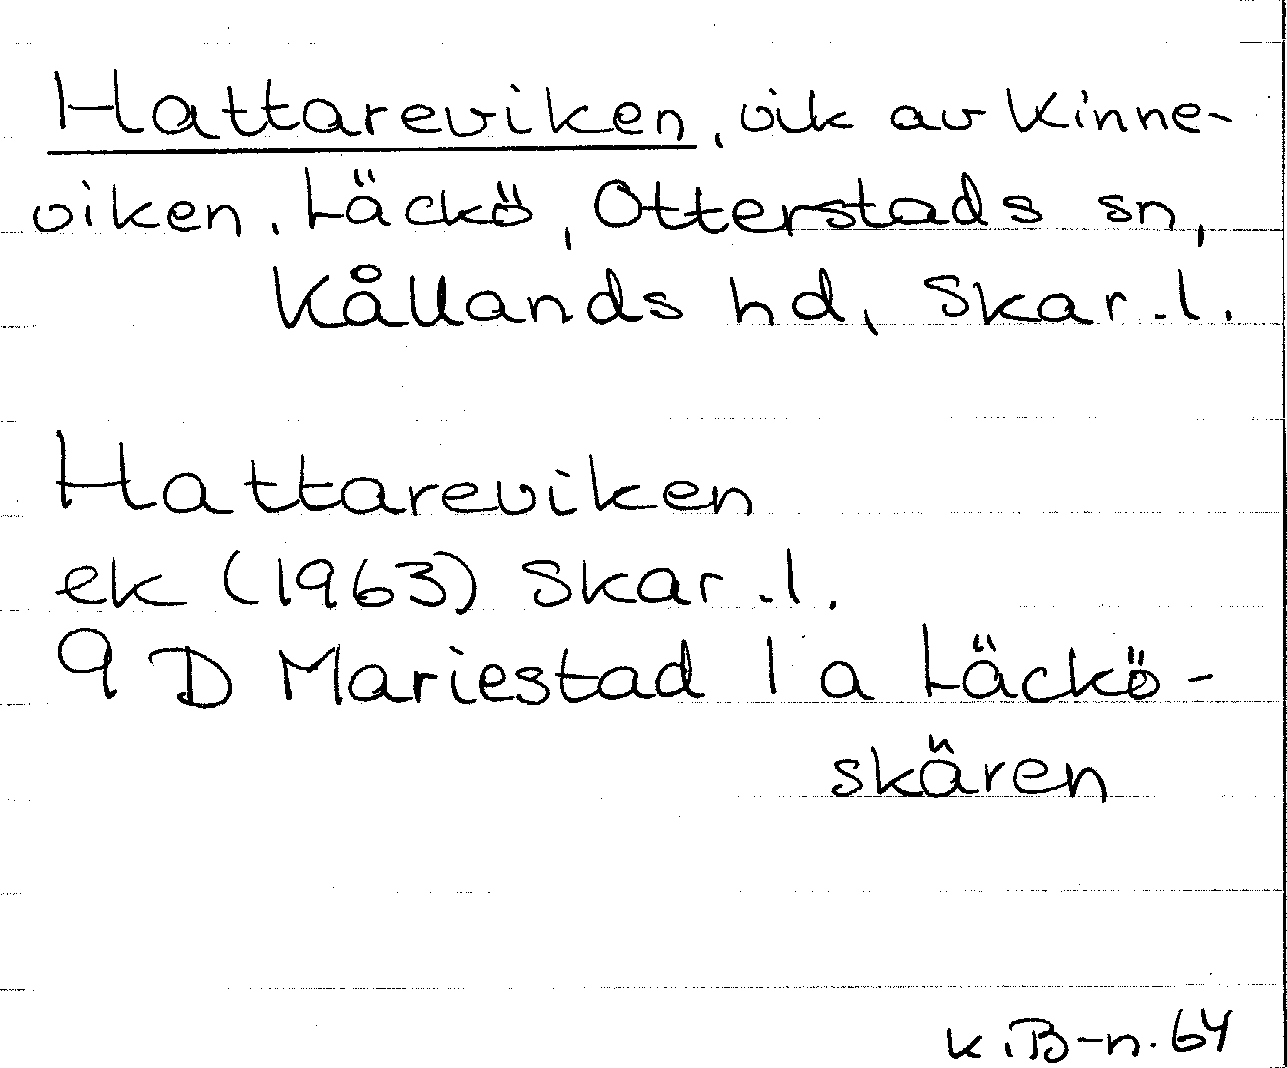 Hattareviken, vik av Kinne-
viken. Läckö, Otterstads sn,
Kållands hd, Skar.l.
Hattareviken
ek (1963) Skar.l.
9 D Mariestad 1 a Läckö-
skären
K.B-n. 64